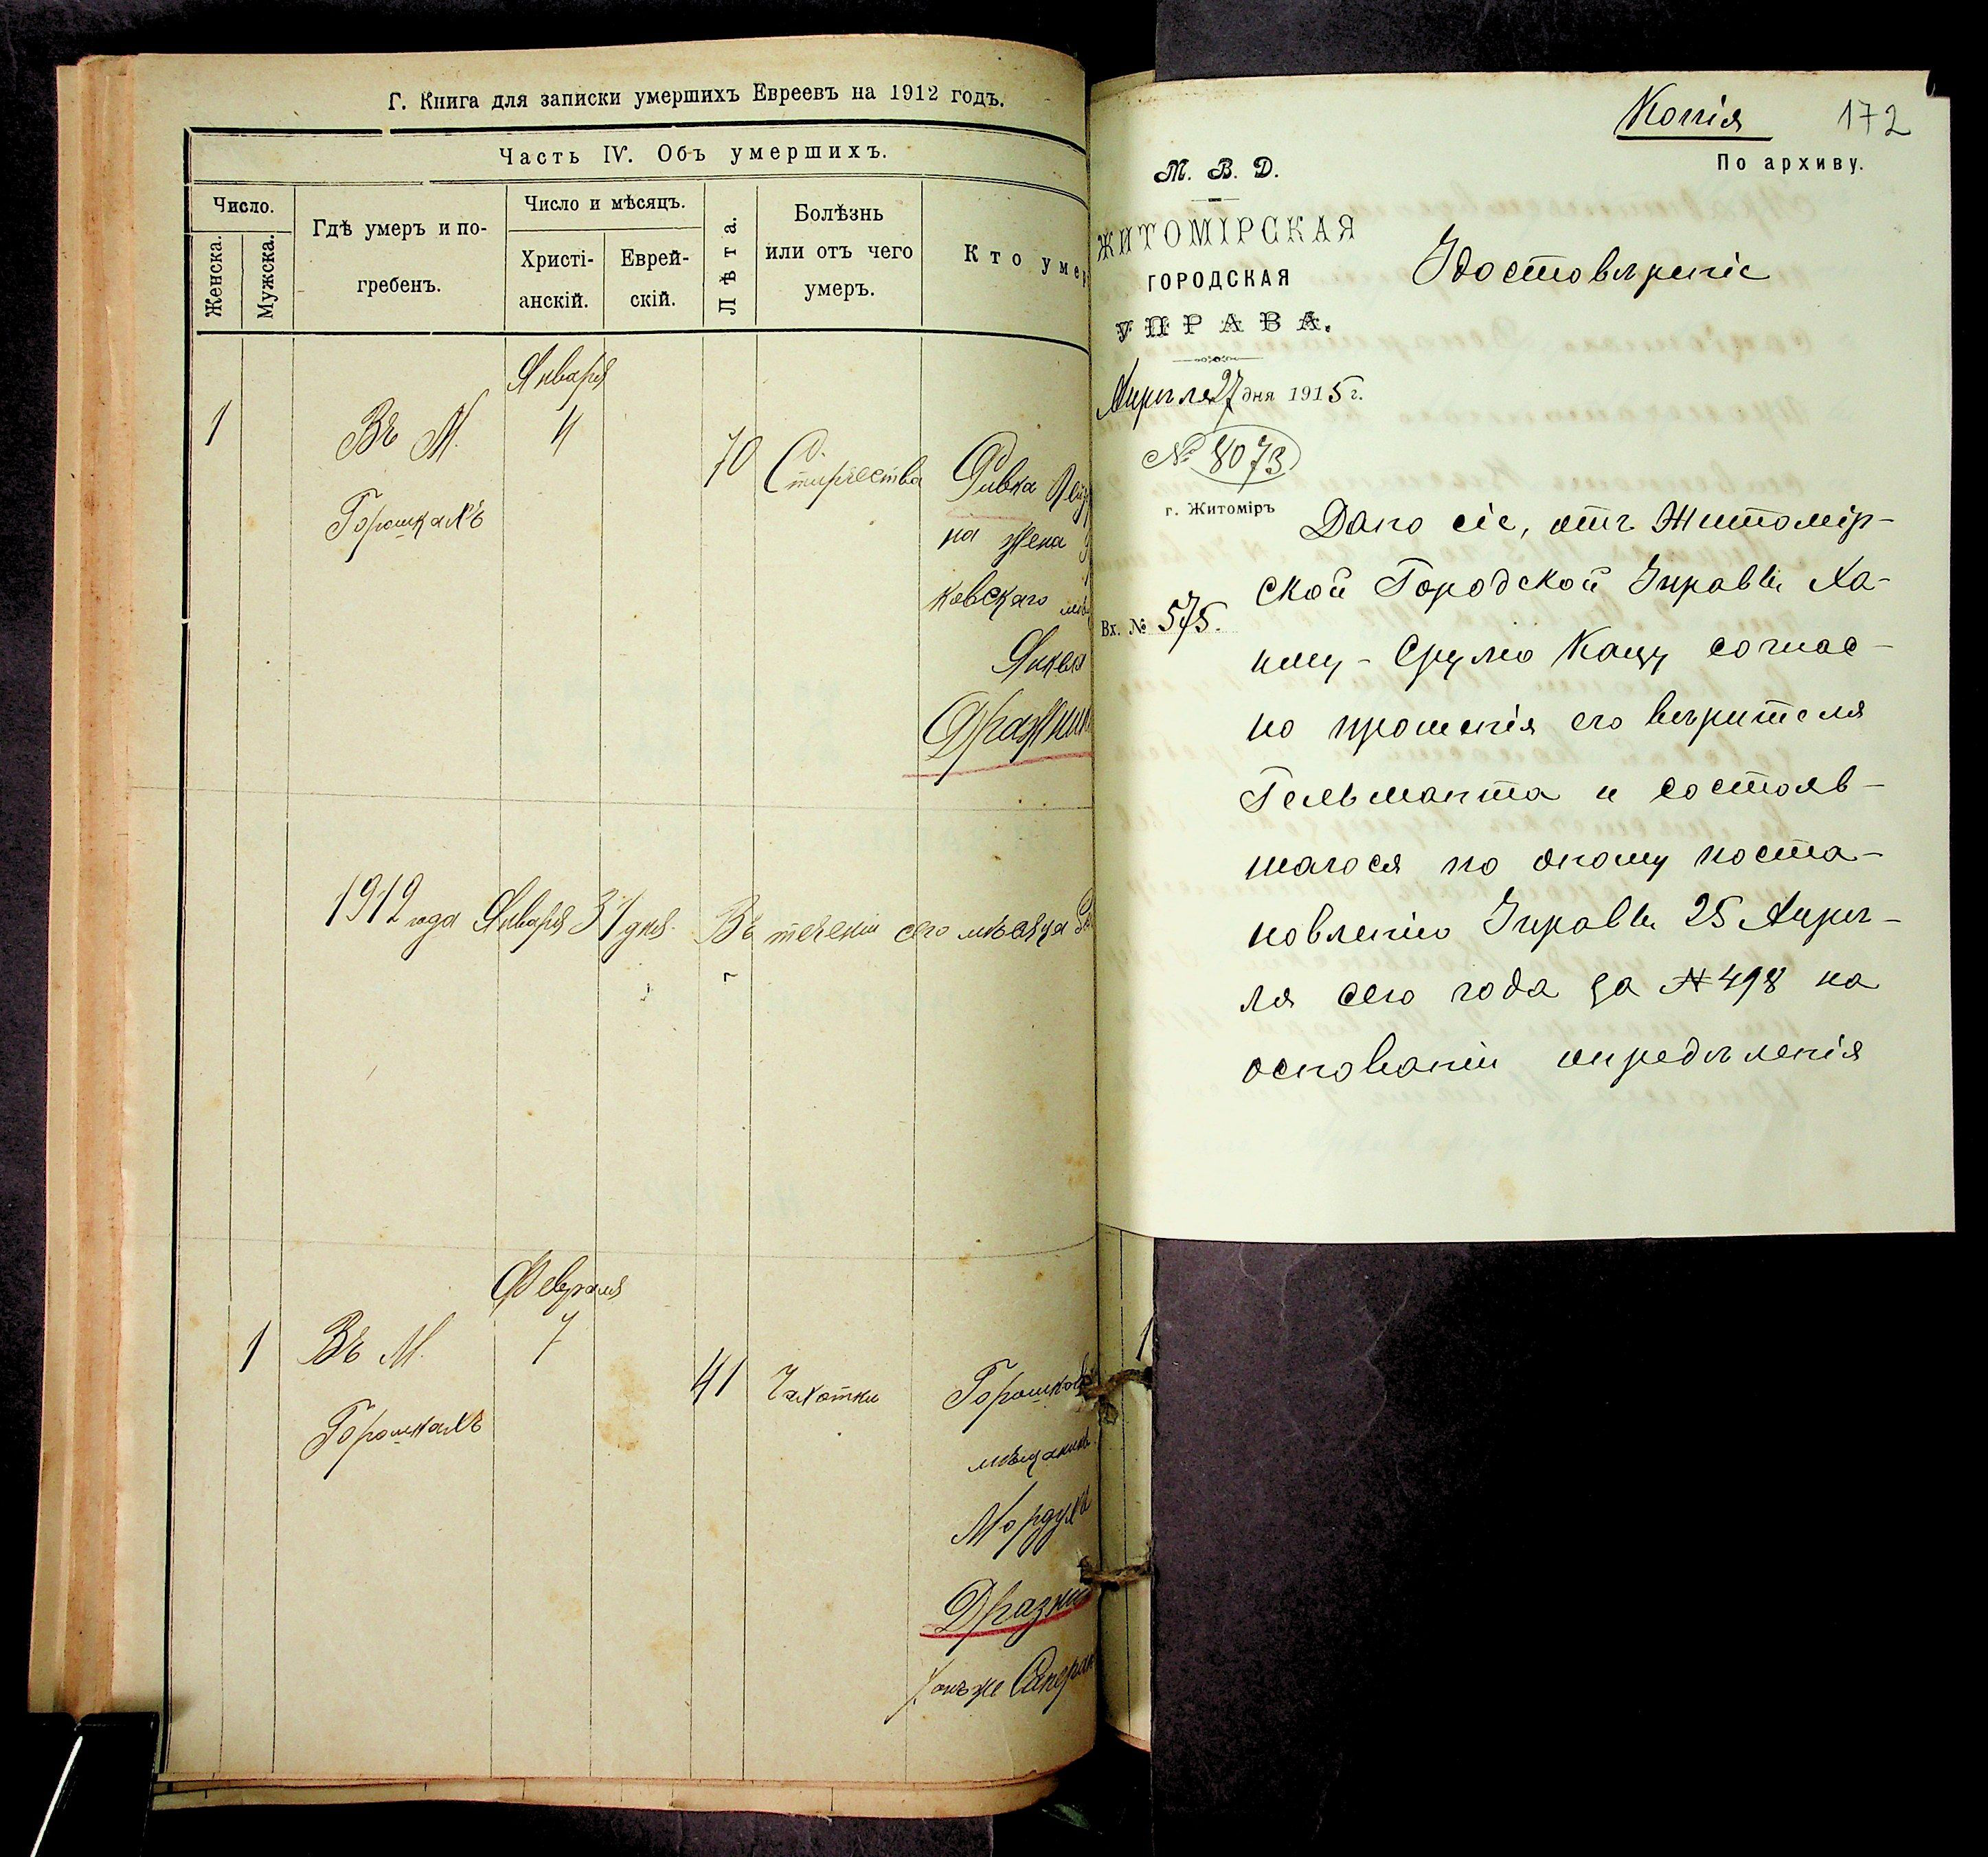 Г. Книга для записки умершихъ Евреевъ на 1912 годъ.
Часть IV. Объ умершихъ.
Число.
Женска.
Мужска.
Гдѣ умеръ и по-
гребенъ.
Число и мѣсяцъ.
Христі-
анскій.
Еврей-
скій.
Лѣта.
Болѣзнь
или отъ чего
умеръ.
Кто умер
Января
1 Въ М. 4
Горошкахъ
70 Старчества Ривка
на жена
ковскаго
Янкеля
1912 года Января 31 дня. Въ теченіи сего мѣсяца
Февраля
1 Въ М. 7
Горошкахъ
41 Чахотки Горошков
мѣщанинъ
Мордухъ
Дразни
онъ же
Копія 172
По архиву.
М. В. Д.
ЖИТОМІРСКАЯ
ГОРОДСКАЯ
УПРАВА.
Апрѣля 27 дня 1915 г.
№ 8073
г. Житоміръ
Вх. № 575.
Удостовѣреніе
Дано сіе, отъ Житомір-
ской Городской Управы Ха-
иму-Срулю Кацу соглас-
но прошенія его вѣрителя
Гельманта и состояв-
шагося по оному поста-
новленію Управы 25 Апрѣ-
ля сего года за № 498 на
основаніи опредѣленія